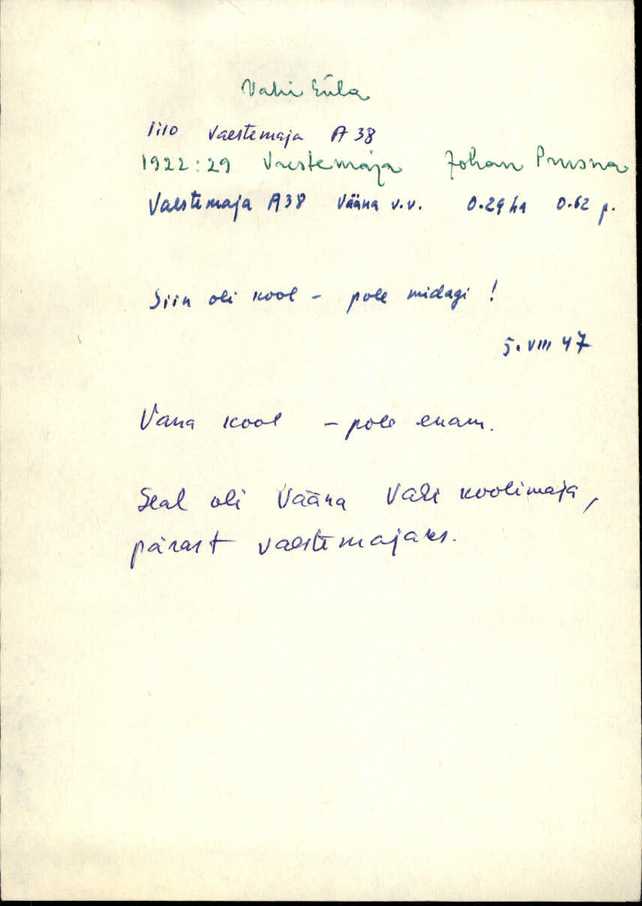 Vahi küla
1:10 Vaestemaja A 38
1922:29 Vaestemaja Johan Prusna
Vaestemaja A38 Vääna v.v. 0.29 ha 0.62 p.
Siin oli kool - pole midagi!
5. VIII 47
Vana kool - pole enam.
Seal oli Vääna Vahi koolimaja,
pärast vaestemajaks.